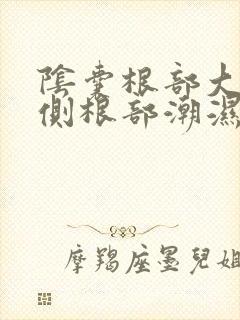 陰囊根部大
側根部潮濕
摩羯座墨兒姐